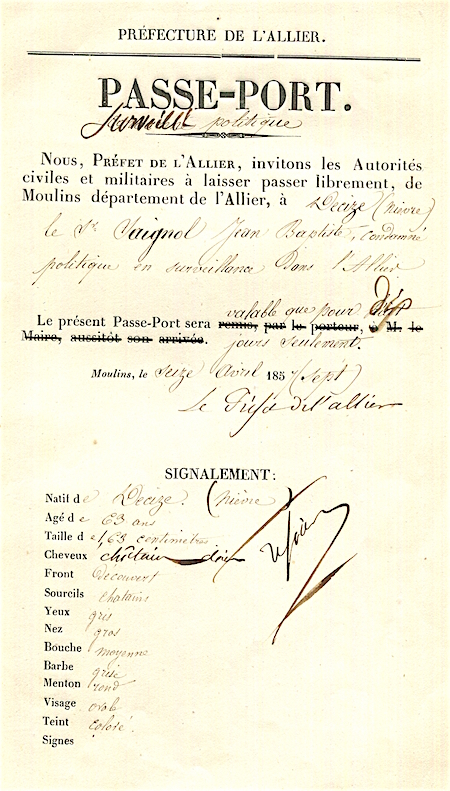 PRÉFECTURE DE L'ALLIER.
PASSE-PORT.
Surveillé politique
Nous, Préfet de l'Allier, invitons les Autorités
civiles et militaires à laisser passer librement, de
Moulins département de l'Allier, à Decize (nièvre)
le Sr. Saignol Jean Baptiste, condamné
politique en surveillance Dans l'Allier
valable que pour dix
Le présent Passe-Port sera remis, par le porteur, à M. le
Maire, aussitôt son arrivée. jours seulement.
Moulins, le seize Avril 1857 (sept)
Le Préfet de l'allier
SIGNALEMENT:
Natif de Decize. (nièvre)
Agé de 63 ans
Taille de 1,63 centimètres
Cheveux châtain clair
Front Decouvert
Sourcils chatains
Yeux gris
Nez gros
Bouche moyenne
Barbe grise
Menton rond
Visage ovale
Teint coloré.
Signes